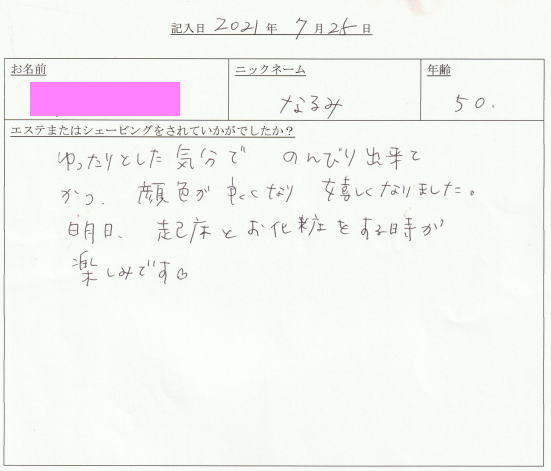 記入日 2021年 7月25日
お名前 ニックネーム 年齢
なるみ 50.
エステまたはシェービングをされていかがでしたか？
ゆったりとした気分で のんびり出来て
かつ、顔色が良くなり 嬉しくなりました。
明日、起床とお化粧をする時が
楽しみです